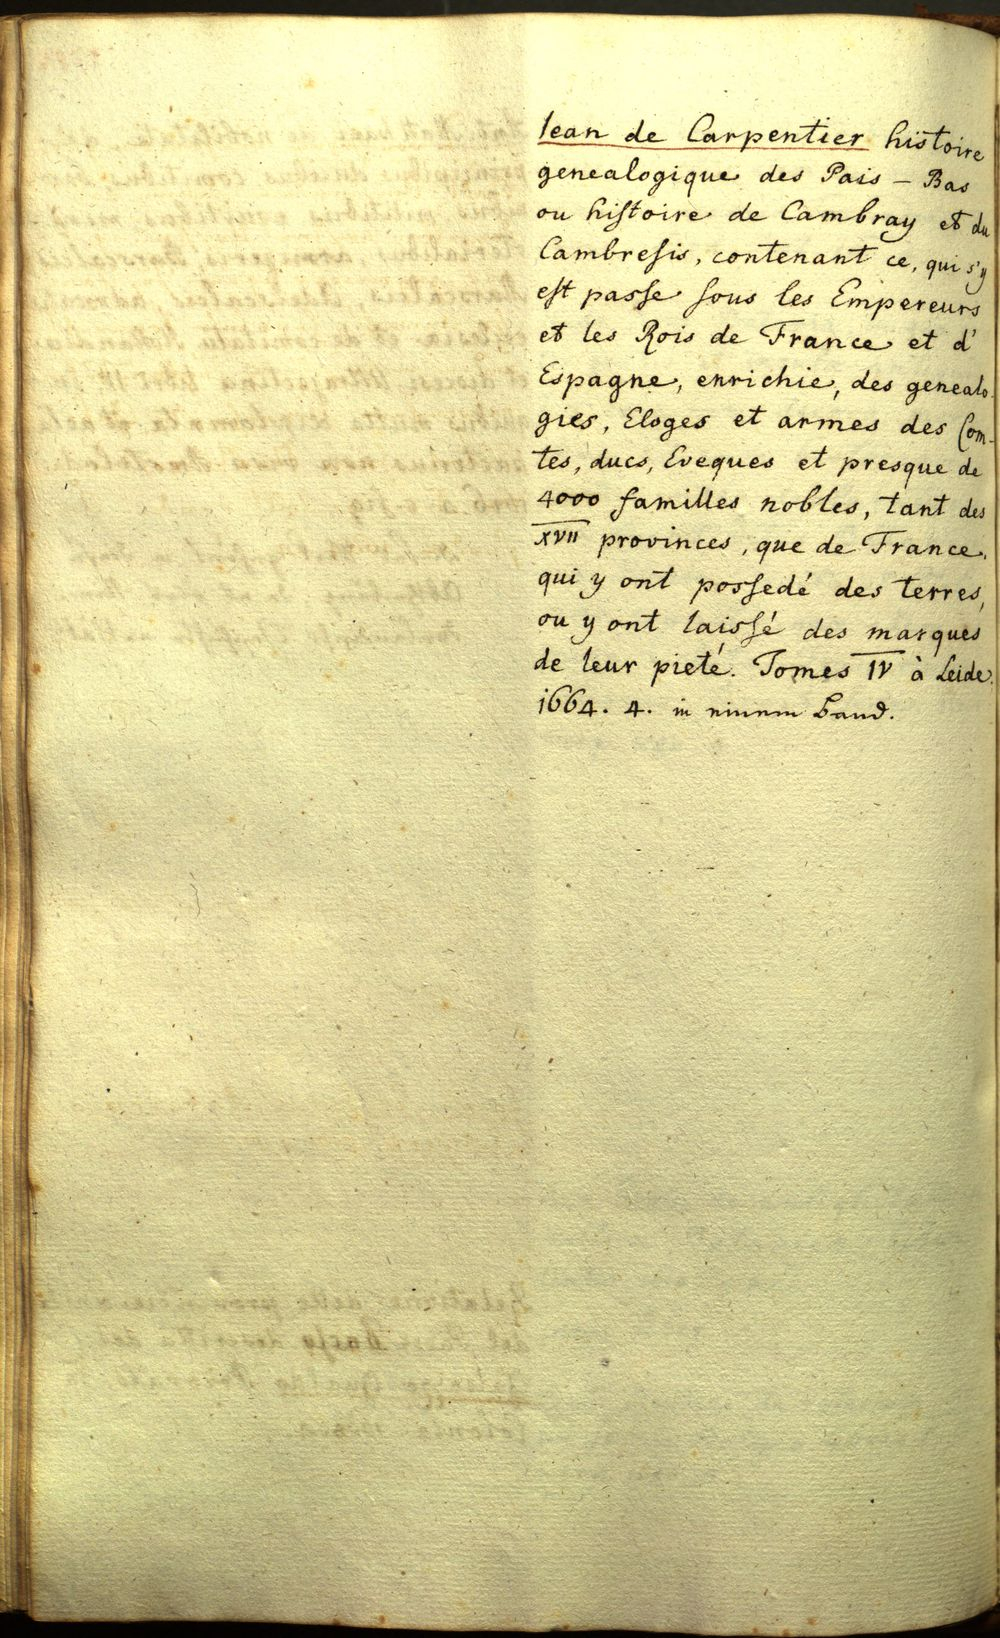 Iean de Carpentier histoire
genealogique des Pais - Bas
ou hiſtoire de Cambray et du
Cambreſis, contenant ce, qui s'y
eſt paſſe ſous les Empereurs
et les Rois de France et d'
Espagne, enrichie, des genealo-
gies, Eloges et armes des Com-
tes, ducs, Eveques et presque de
4000 familles nobles, tant des
XVII provinces, que de France,
qui y ont poſſedé des terres,
ou y ont laiſſé des marques
de leur pieté. Tomes IV à Leide.
1664. 4. in einem Band.